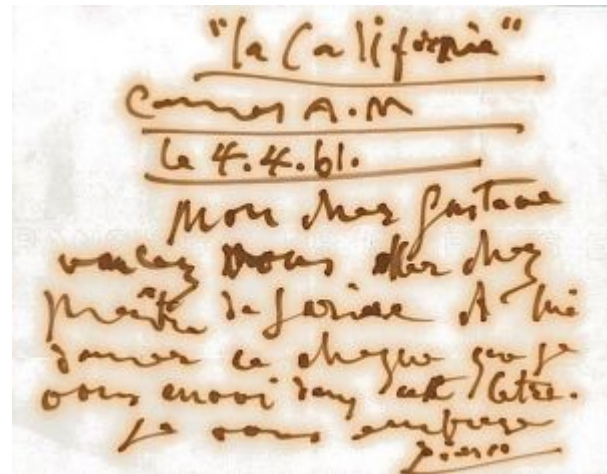 "la Californie"
Cannes A.M
le 4.4.61.
Mon cher Gustave
voulez vous aller chez
maître de Sariac et lui
donner ce cheque que je
vous envoi dans cette lettre.
je vous embrasse